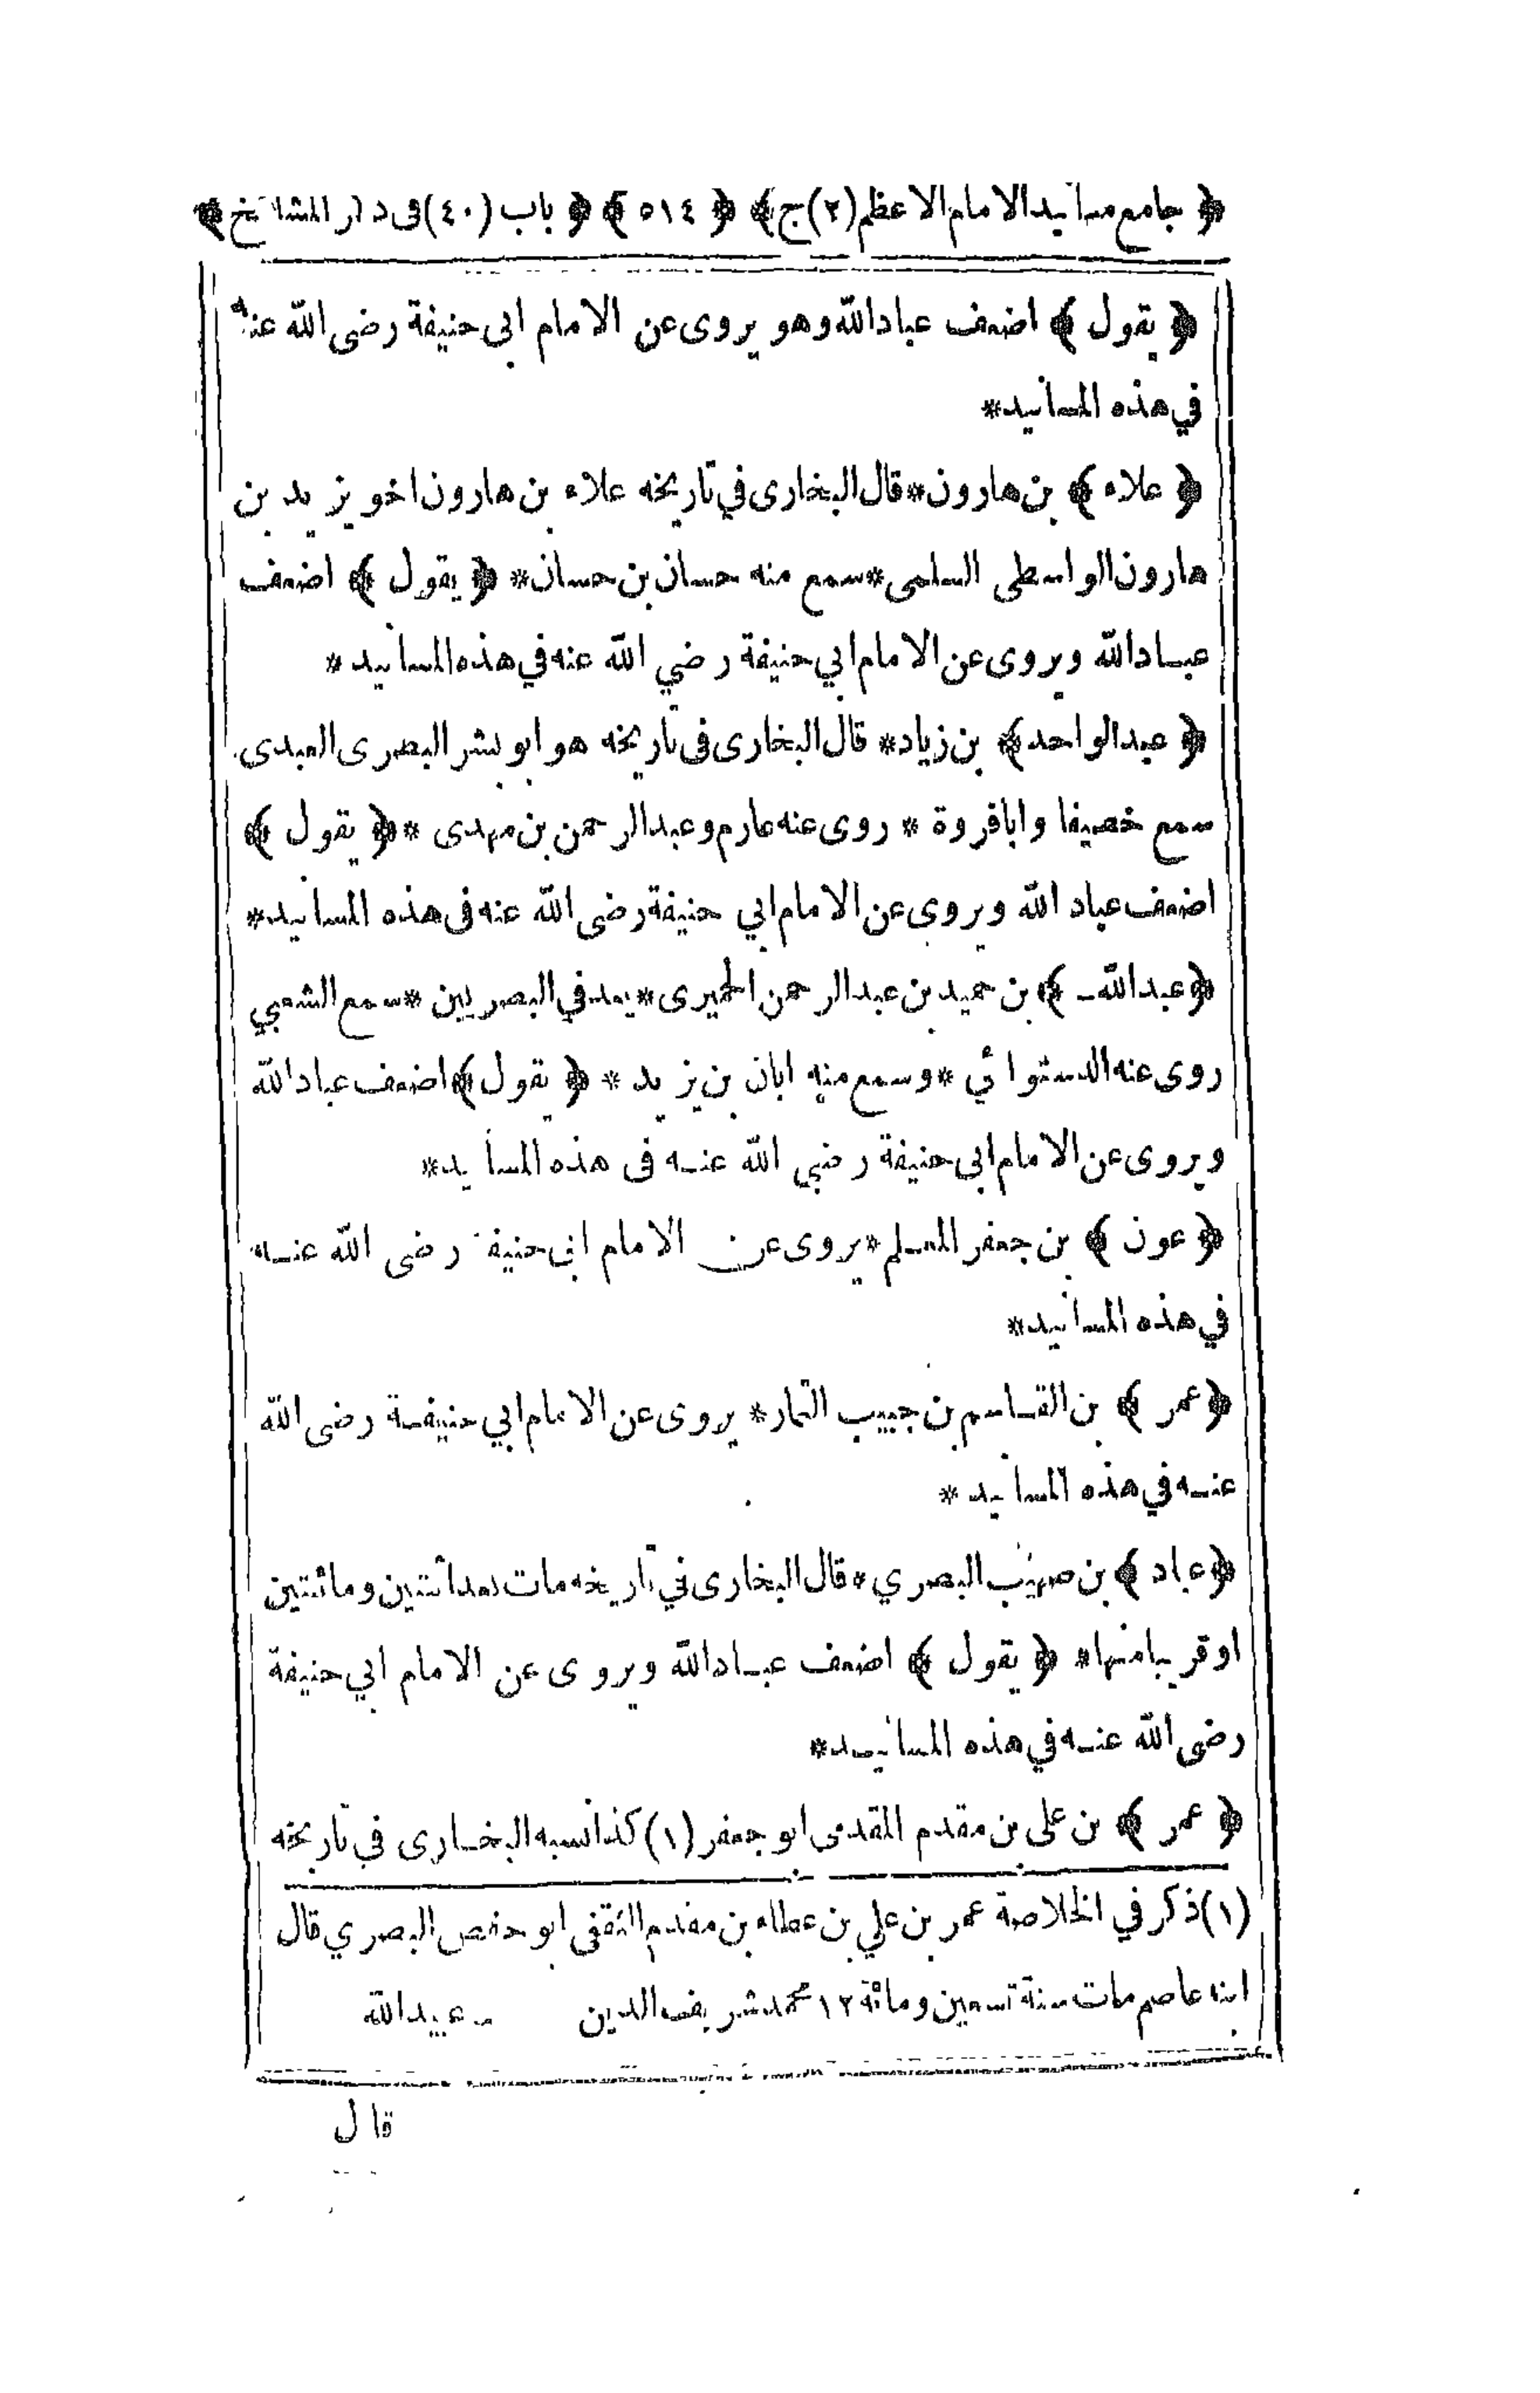 ﴿ جامع مسانيد الامام الاعظم (٢) ج ﴾ ﴿ ٥١٤ ﴾ ﴿ باب (٤٠) فى ذكر المشائخ ﴾
﴿ يقول ﴾ اضعف عباد الله وهو يروى عن الامام ابى حنيفة رضى الله عنه
في هذه المسانيد*
﴿ علاء ﴾ بن هارون* قال البخارى في تاريخه علاء بن هارون اخو يزيد بن
هارون الواسطى السلمى* سمع منه حسان بن حسان* ﴿ يقول ﴾ اضعف
عباد الله ويروى عن الامام ابي حنيفة رضي الله عنه في هذه المسانيد*
﴿ عبد الواحد ﴾ بن زياد* قال البخارى فى تاريخه هو ابو بشر البصرى العبدى
سمع خصيفا وابا فروة * روى عنه عارم وعبد الرحمن بن مهدى * ﴿ يقول ﴾
اضعف عباد الله ويروى عن الامام ابي حنيفة رضى الله عنه فى هذه المسانيد*
﴿ عبد الله ـ ﴾ بن حميد بن عبد الرحمن الحميرى* يعد في البصريين * سمع الشعبي
روى عنه الدستوائي * وسمع منه ابان بن يزيد * ﴿ يقول ﴾ اضعف عباد الله
ويروى عن الامام ابى حنيفة رضي الله عنه فى هذه المسانيد*
﴿ عون ﴾ بن جعفر المعلم* يروى عن الامام ابى حنيفة رضى الله عنه
في هذه المسانيد*
﴿ عمر ﴾ بن القاسم بن حبيب التمار* يروى عن الامام ابي حنيفة رضى الله
عنه في هذه المسانيد *
﴿ عباد ﴾ بن صهيب البصري* قال البخارى في تاريخه مات بعد اثنتين ومائتين
او قريبا منها* ﴿ يقول ﴾ اضعف عباد الله ويروى عن الامام ابي حنيفة
رضى الله عنه في هذه المسانيد*
﴿ عمر ﴾ بن على بن مقدم المقدمى ابو جعفر (١) كذا نسبه البخارى في تاريخه
(١) ذكر في الخلاصة عمر بن علي بن عطاء بن مقدم الثقفى ابو حفص البصري قال
ابنه عاصم مات سنة تسعين ومائة ١٢ محمد شريف الدين ـ عبيد الله
قال